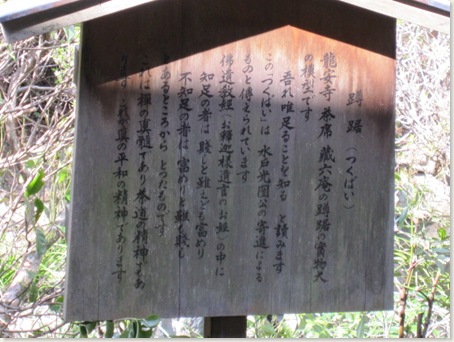 蹲踞(つくばい)
龍安寺の茶席 蔵六庵の蹲踞の實物大
の模型です
吾れ唯足ることを知る と読みます
この「つくばい」は 水戸光圀公の寄進による
ものと傳えられています
佛遺教経(お釋迦様遺言のお経)の中に
知足の者は 賤しと雖えども富めり
不知足の者は 富めりと雖も貧し
とあるところから とったものです
これは禅の真髄であり茶道の精神でもあ
ります これが真の平和の精神であります